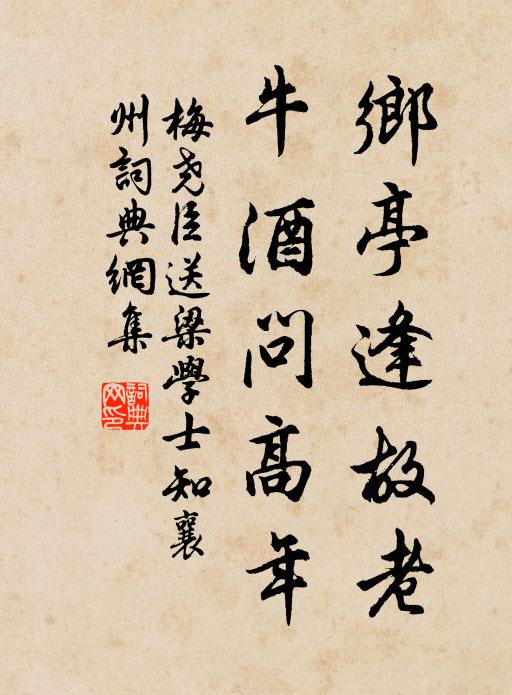 鄉亭逢故老
牛酒問高年
梅尧臣送梁學士知襄
州詞典網集
詞典网印